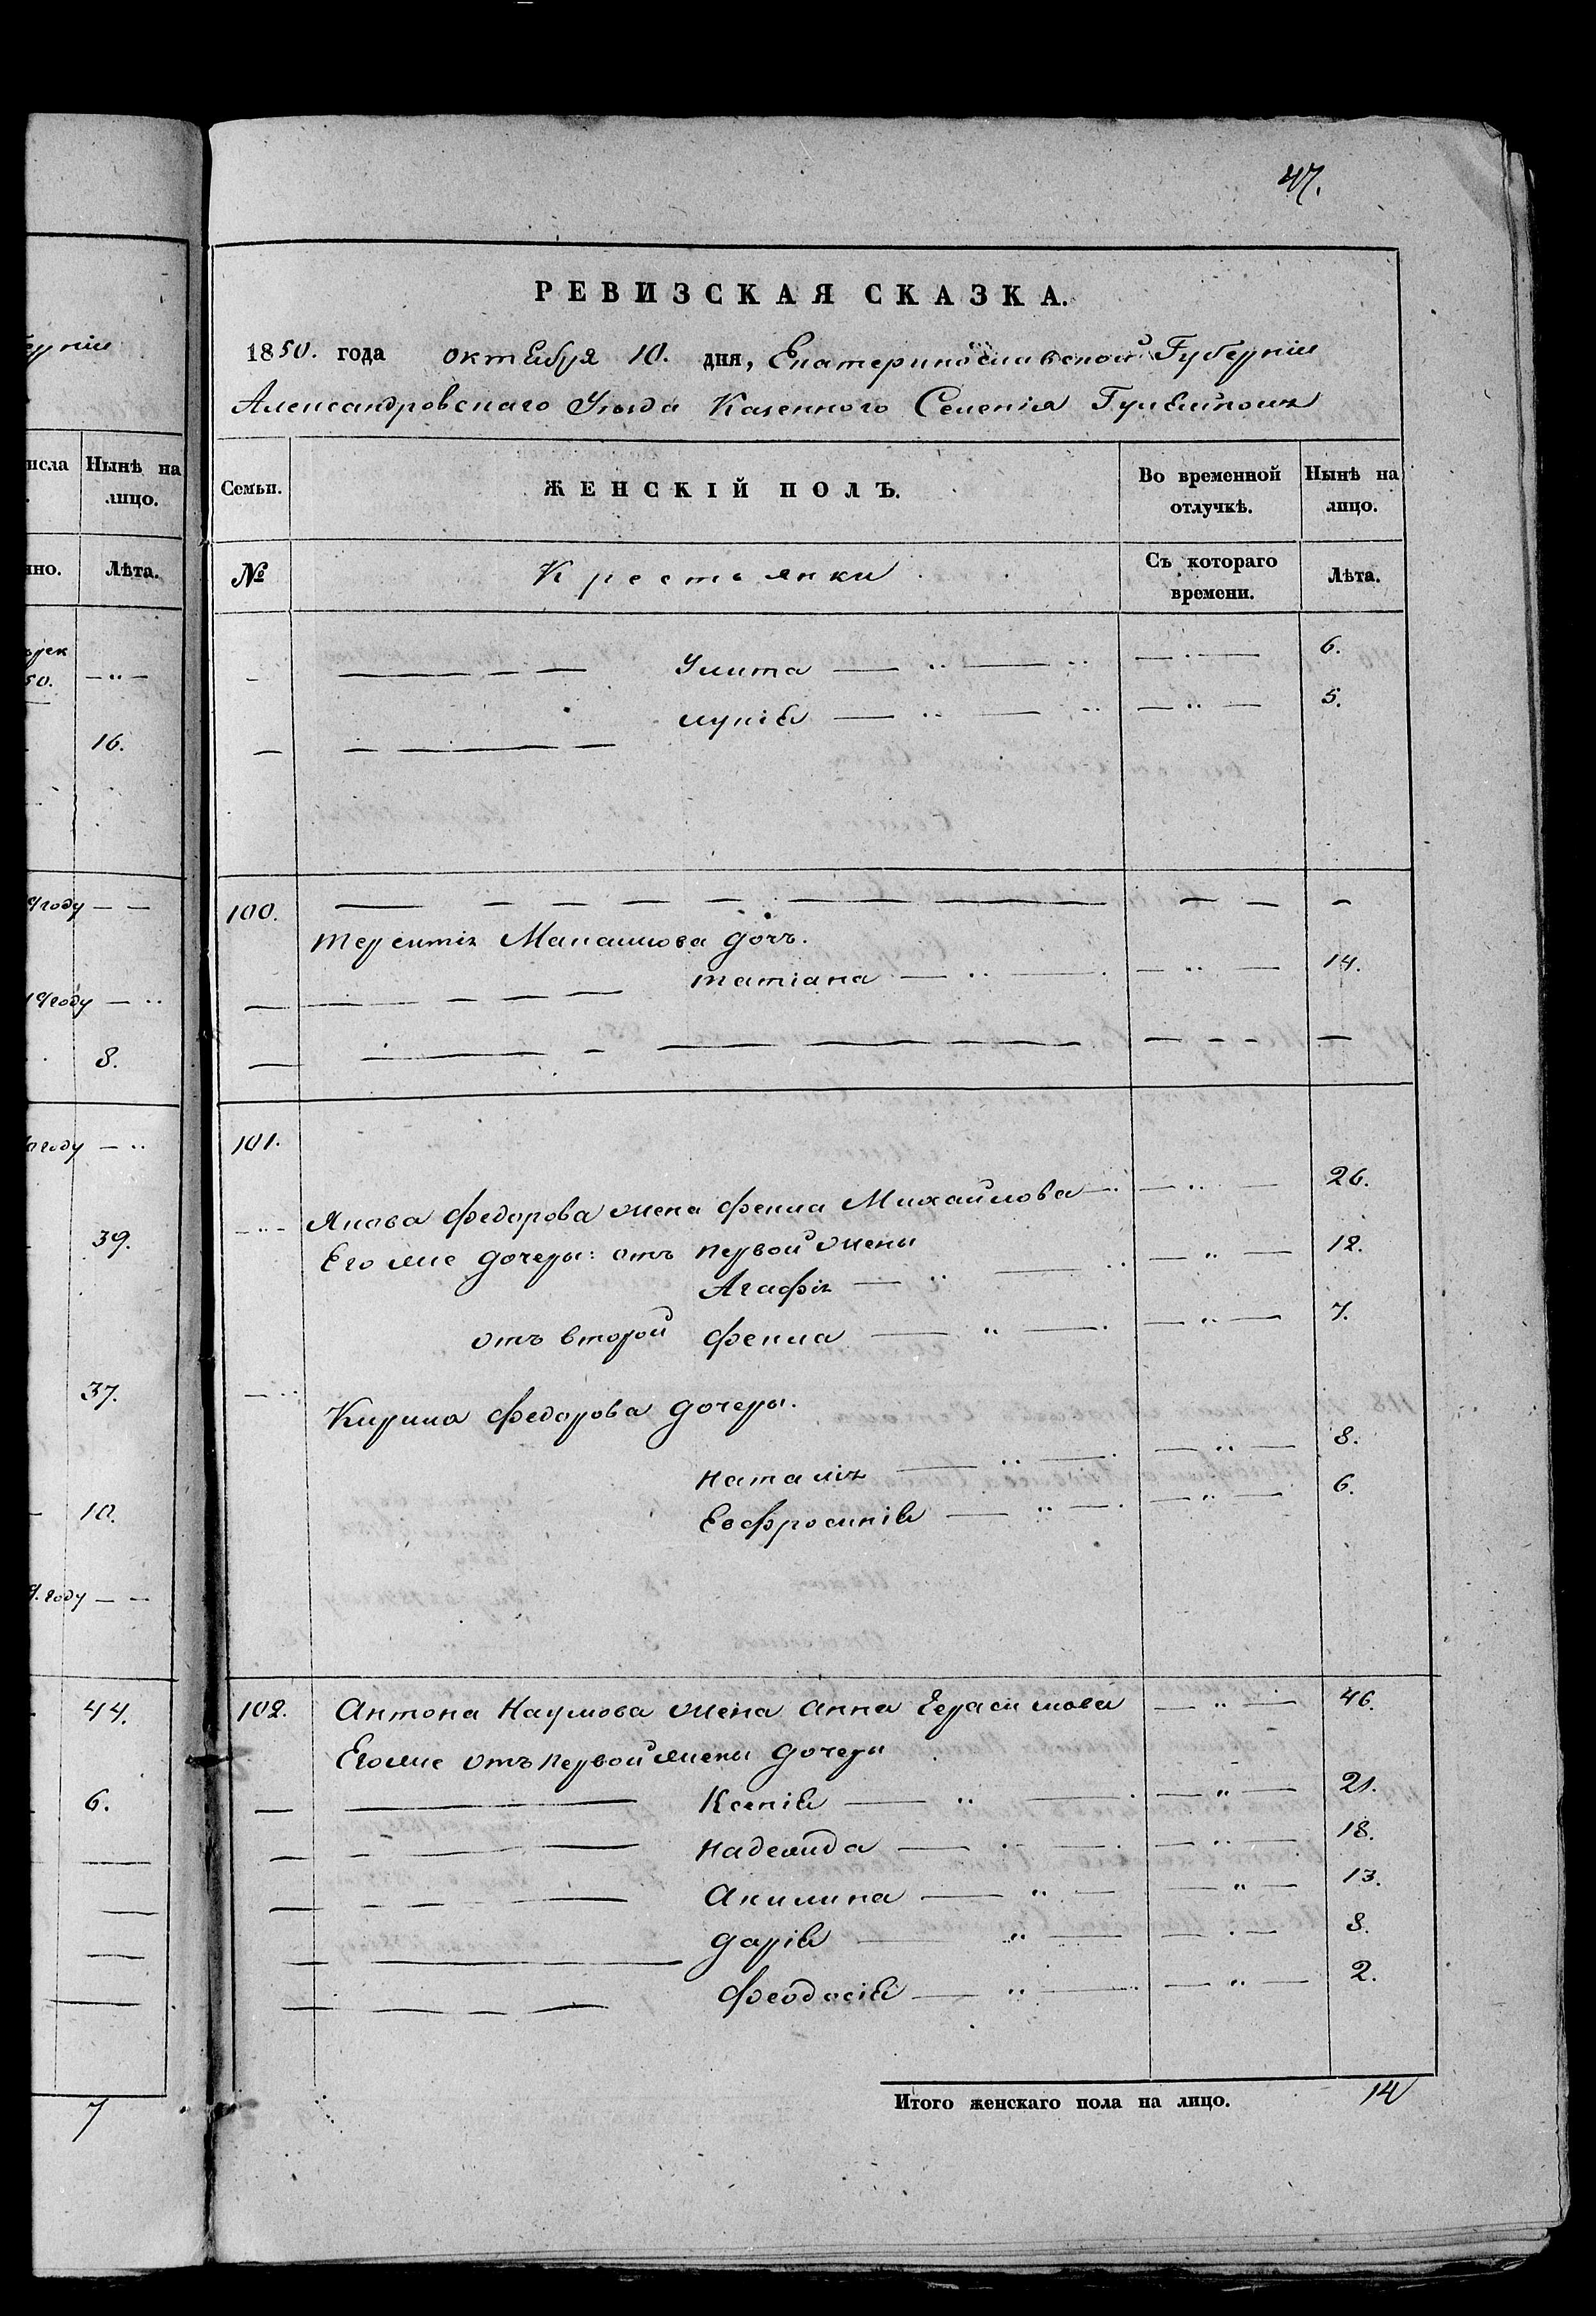 47.
РЕВИЗСКАЯ СКАЗКА.
1850. года октября 10. дня, Екатеринославской Губернии
Александровскаго Уезда Казеннаго Селенія
Семьи.
ЖЕНСКІЙ ПОЛЪ.
Во временной отлучкѣ.
Нынѣ на лицо.
№
Крестьянки
Съ котораго времени.
Лѣта.
Улита — " — " — . — 6.
— " — " — " — 5.
100.
дочь.
татіана — " — . — " — 14.
101.
Якова Федорова жена Фекла Михайлова — " — 26.
Его же дочеры: отъ первой жены
Агафія — " — . . — " — 12.
отъ второй Фекла — " — . — " — 7.
Кирила Федорова дочеры.
наталія — " — . — " — 8.
Евфросинія — " — . — " — 6.
102. Антона Наумова жена Анна Герасимова — " — 46.
Его же отъ первой жены дочеры
Ксенія — " — . — " — 21.
надежда — " — . — " — 18.
Акилина — " — — " — 13.
дарія — " — — . — 8.
Феодосія — " — . — " — 2.
Итого женскаго пола на лицо. 14
исла
Нынѣ на лицо.
Лѣта.
50. — " —
16.
году — —
году — "
8.
году — "
39.
37.
10.
году — —
44.
6.
7